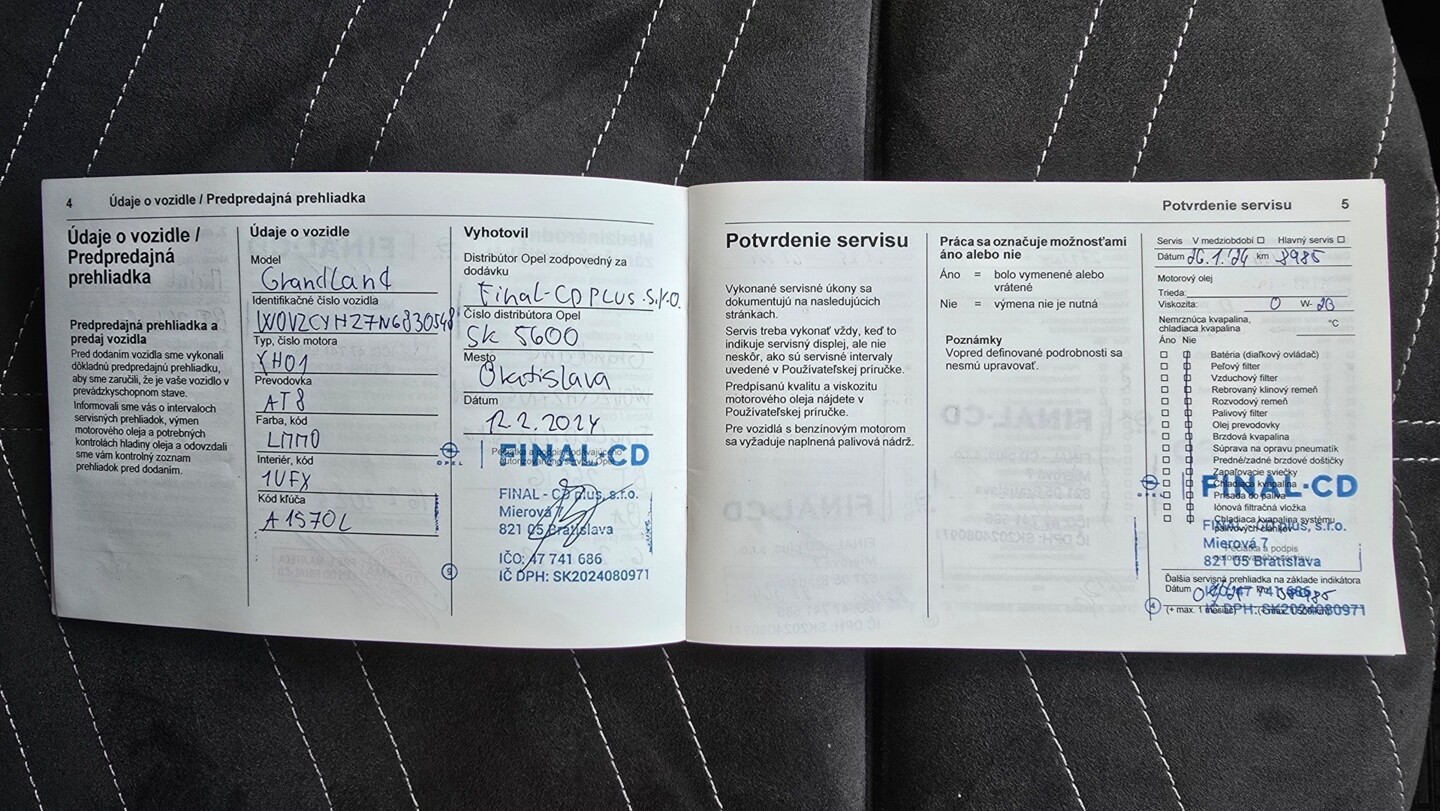 4 Údaje o vozidle / Predpredajná prehliadka
Údaje o vozidle /
Predpredajná
prehliadka
Predpredajná prehliadka a
predaj vozidla
Pred dodaním vozidla sme vykonali
dôkladnú predpredajnú prehliadku,
aby sme zaručili, že je vaše vozidlo v
prevádzkyschopnom stave.
Informovali sme vás o intervaloch
servisných prehliadok, výmen
motorového oleja a potrebných
kontrolách hladiny oleja a odovzdali
sme vám kontrolný zoznam
prehliadok pred dodaním.
Údaje o vozidle
Model
Grandland
Identifikačné číslo vozidla
W0VZCYHZ7N6830548
Typ, číslo motora
YH01
Prevodovka
AT8
Farba, kód
LMM0
Interiér, kód
1UFX
Kód kľúča
A1570L
Vyhotovil
Distribútor Opel zodpovedný za
dodávku
Final-CD PLUS s.r.o.
Číslo distribútora Opel
SK 5600
Mesto
Bratislava
Dátum
12.2.2024
OPEL
FINAL-CD
FINAL - CD plus, s.r.o.
Mierová 7
821 05 Bratislava
IČO: 47 741 686
IČ DPH: SK2024080971
Potvrdenie servisu 5
Potvrdenie servisu
Vykonané servisné úkony sa
dokumentujú na nasledujúcich
stránkach.
Servis treba vykonať vždy, keď to
indikuje servisný displej, ale nie
neskôr, ako sú servisné intervaly
uvedené v Používateľskej príručke.
Predpísanú kvalitu a viskozitu
motorového oleja nájdete v
Používateľskej príručke.
Pre vozidlá s benzínovým motorom
sa vyžaduje naplnená palivová nádrž.
Práca sa označuje možnosťami
áno alebo nie
Áno = bolo vymenené alebo
vrátené
Nie = výmena nie je nutná
Poznámky
Vopred definované podrobnosti sa
nesmú upravovať.
Servis V medziobdobí Hlavný servis
Dátum 26.1.24 km 8985
Motorový olej
Trieda:
Viskozita: 0 W- 20
Nemrznúca kvapalina,
chladiaca kvapalina °C
Áno Nie
Batéria (diaľkový ovládač)
Peľový filter
Vzduchový filter
Rebrovaný klinový remeň
Rozvodový remeň
Palivový filter
Olej prevodovky
Brzdová kvapalina
Súprava na opravu pneumatík
Predné/zadné brzdové doštičky
Zapaľovacie sviečky
Chladiaca kvapalina
Prísada do paliva
Iónová filtračná vložka
Chladiaca kvapalina systému
palivových článkov
OPEL
FINAL-CD
FINAL - CD plus, s.r.o.
Mierová 7
821 05 Bratislava
Ďalšia servisná prehliadka na základe indikátora
Dátum
IČO: 47 741 686
IČ DPH: SK2024080971
(+ max. 1 mesiac)